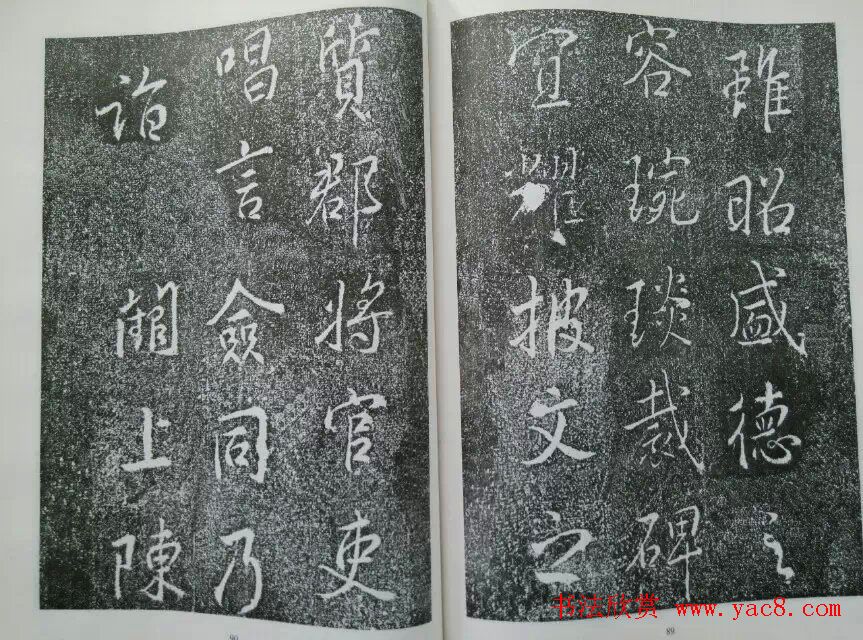 雖昭盛德之
容琬琰裁碑
宜耀披文之
質郡將官吏
唱言僉同乃
詣闕上陳
90
89
书法欣赏 www.yac8.com